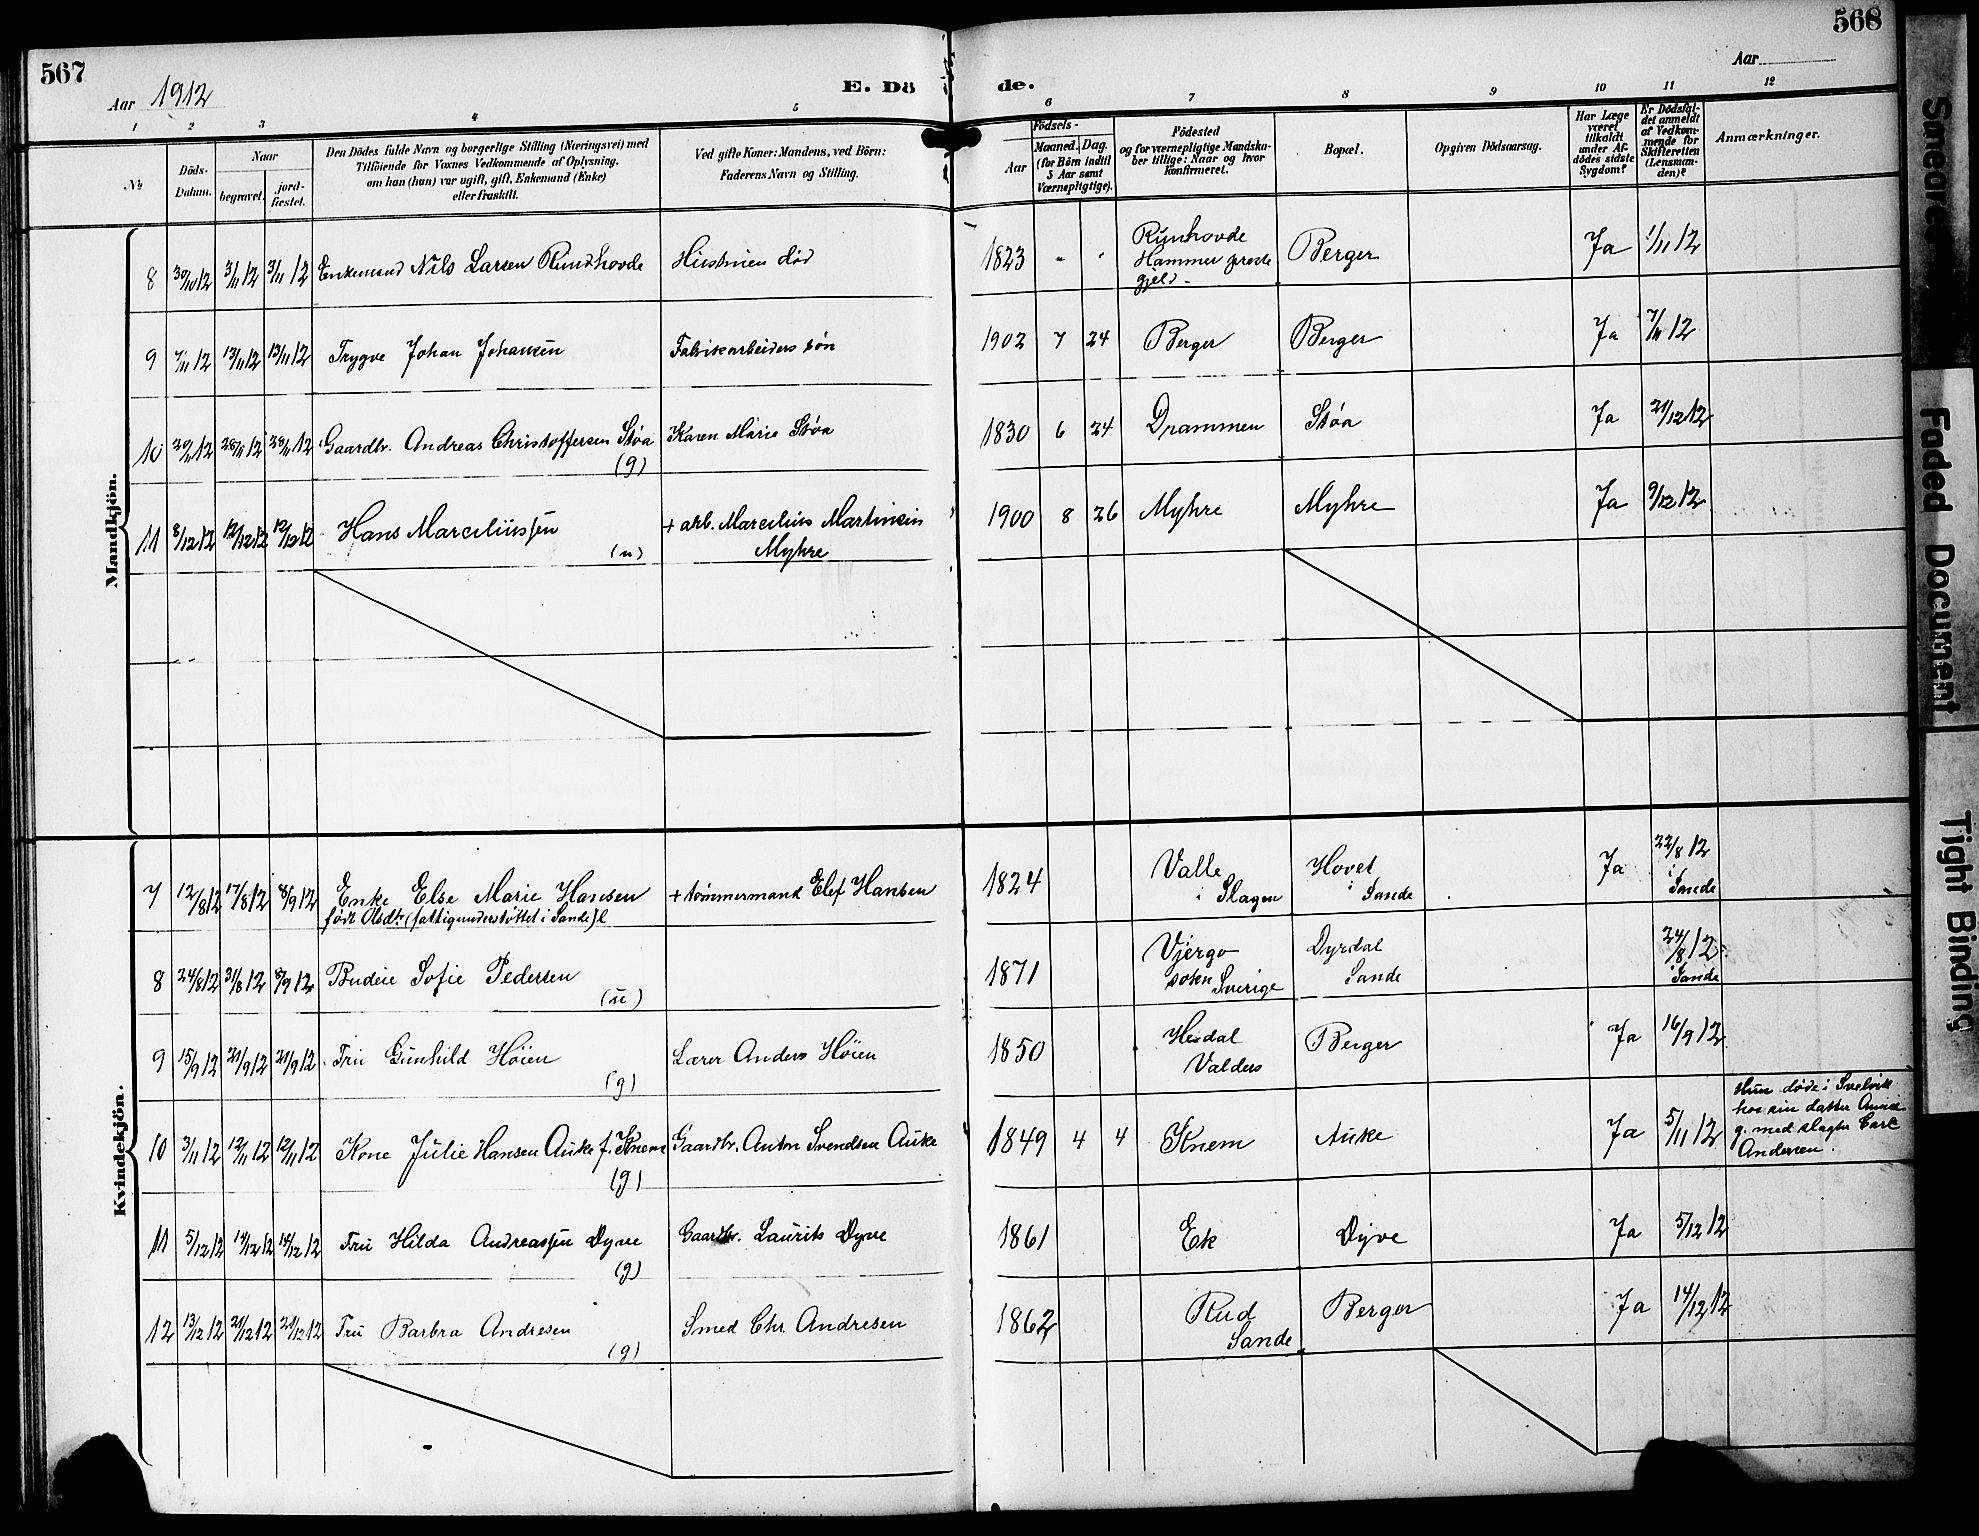 567
568
Aar 1912
E. Dö
de.
Aar
1 2 3 4 5 6 7 8 9 10 11 12
№
Döds-
Datum.
Naar
begravet.
jord-
fæstet.
Den Dödes fulde Navn og borgerlige Stilling (Næringsvei) med
Tilföiende for Voxnes Vedkommende af Oplysning,
om han (hun) var ugift, gift, Enkemand (Enke)
eller fraskilt.
Ved gifte Koner: Mandens, ved Börn:
Faderens Navn og Stilling.
Födsels-
Aar
Maaned. Dag.
(for Börn indtil
5 Aar samt
Værnepligtige).
Födested
og for værnepligtige Mandska-
ber tillige: Naar og hvor
konfirmeret.
Bopæl.
Opgiven Dödsaarsag.
Har Læge
været
tilkaldt
under Af-
dödes sidste
Sygdom?
Er Dödsfal-
det anmeldt
af Vedkom-
mende for
Skifteretten
(Lensman-
den)?
Anmærkninger.
Mandkjön.
8 30/10 12 3/11 12 3/11 12 Enkemand Nils Larsen Rundhovde Hustruen død 1823 - - Runhovde Berger Ja 1/11 12
Hammer preste
gjeld -
9 7/11 12 13/11 12 13/11 12 Trygve Johan Johansen Fabrikarbeiders søn 1902 7 24 Berger Berger Ja 7/11 12
10 20/11 12 28/11 12 28/11 12 Gaardbr. Andreas Christoffersen Støa Karen Marie Støa 1830 6 24 Drammen Støa Ja 21/12 12
(g)
11 8/12 12 12/12 12 12/12 12 Hans Marceliussen + arb. Marcelius Martinsen 1900 8 26 Myhre Myhre Ja 9/12 12
(u) Myhre
Kvindekjön.
7 12/8 12 17/8 12 8/9 12 Enke Else Marie Hansen + tømmermand Elef Hansen 1824 Valle Hovet Ja 22/8 12
født Olsdtr. (fattigunderstøttet i Sande) e i Slagen i Sande i Sande
8 24/8 12 31/8 12 8/9 12 Budeie Sofie Pedersen 1871 Vjergo Dyrdal 24/8 12
(u) sokn Sverige Sande i Sande
9 15/9 12 21/9 12 21/9 12 Fru Gunhild Høien Lærer Anders Høien 1850 Hesdal Berger Ja 16/9 12
(g) Valders
10 3/11 12 12/11 12 12/11 12 Kone Julie Hansen Auke f. Knem Gaardbr. Anton Svendsen Auke 1849 4 4 Knem Auke Ja 5/11 12
(g)
Hun døde i Svelvik
hos sin datter Anna
g. med slagter Carl
Andersen.
11 5/12 12 14/12 12 14/12 12 Fru Hilda Andreassen Dyve Gaardbr. Laurits Dyve 1861 Ek Dyve Ja 5/12 12
(g)
12 13/12 12 21/12 12 21/12 12 Fru Barbra Andresen Smed Chr. Andresen 1862 Rud Berger Ja 14/12 12
(g) Sande
Smeared
Faded Document
Tight Binding